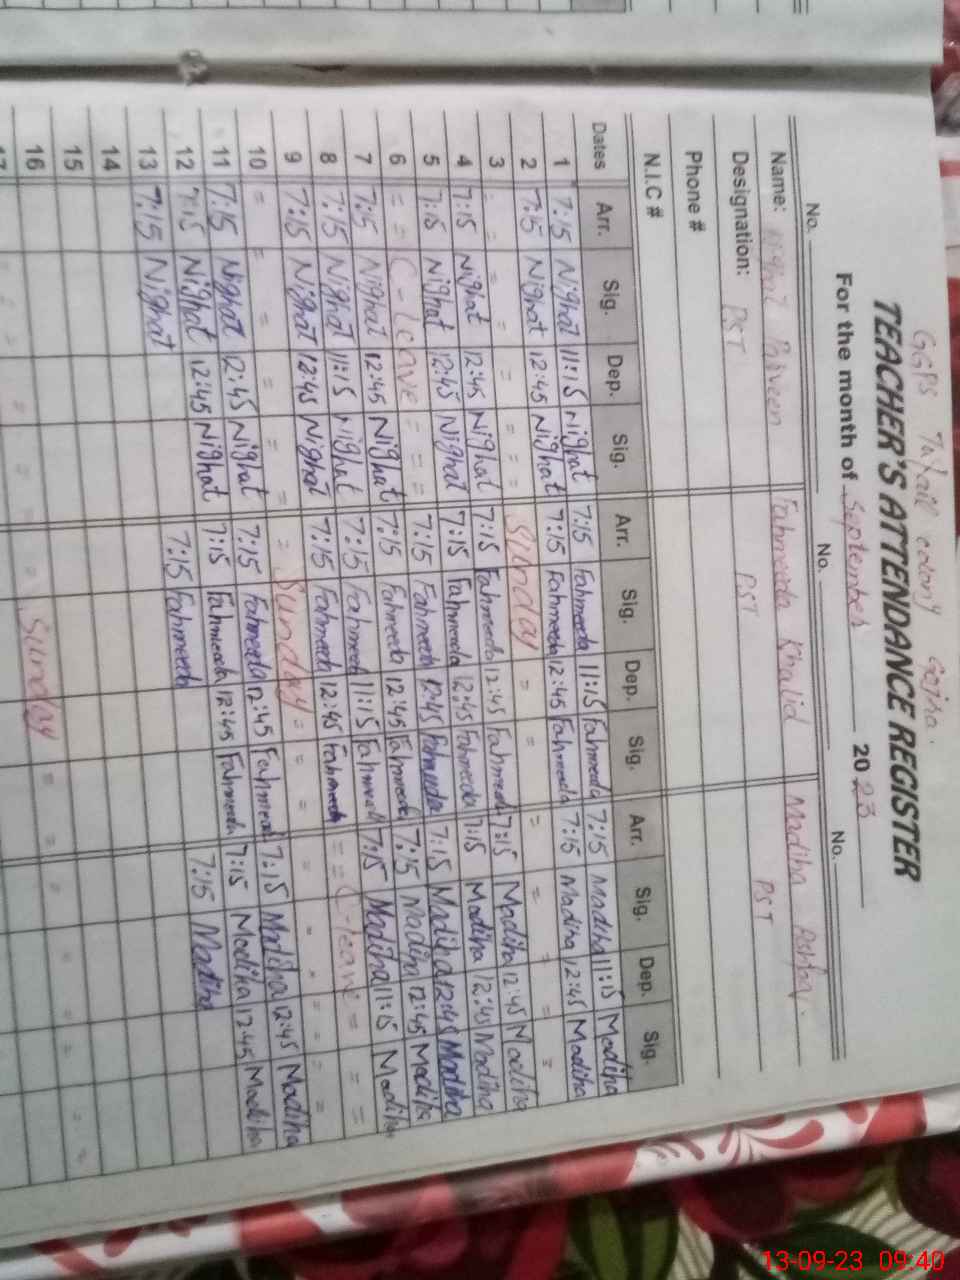 GGPS colony Gojra.
TEACHER'S ATTENDANCE REGISTER
For the month of September 2023
No. No. No.
Name: Nighat Parveen Fahmeeda Khalid Madiha Ashfaq.
Designation: PST PST PST
Phone #
N.I.C #
Dates Arr. Sig. Dep. Sig. Arr. Sig. Dep. Sig. Arr. Sig. Dep. Sig.
1 7:15 Nighat 11:15 Nighat 7:15 Fahmeeda 11:15 Fahmeeda 7:15 Madiha 11:15 Madiha
2 7:15 Nighat 12:45 Nighat 7:15 Fahmeeda 12:45 Fahmeeda 7:15 Madiha 12:45 Madiha
3 = = = = = Sunday = = = = = =
4 7:15 Nighat 12:45 Nighat 7:15 Fahmeeda 12:45 Fahmeeda 7:15 Madiha 12:45 Madiha
5 7:15 Nighat 12:45 Nighat 7:15 Fahmeeda 12:45 Fahmeeda 7:15 Madiha 12:45 Madiha
6 = = C-leave = = = 7:15 Fahmeeda 12:45 Fahmeeda 7:15 Madiha 12:45 Madiha
7 7:15 Nighat 12:45 Nighat 7:15 Fahmeeda 12:45 Fahmeeda 7:15 Madiha 12:45 Madiha
8 7:15 Nighat 11:15 Nighat 7:15 Fahmeeda 11:15 Fahmeeda 7:15 Madiha 11:15 Madiha
9 7:15 Nighat 12:45 Nighat 7:15 Fahmeeda 12:45 Fahmeeda = = C-leave = = =
10 = = = = = = Sunday = = = = = = = =
11 7:15 Nighat 12:45 Nighat 7:15 Fahmeeda 12:45 Fahmeeda 7:15 Madiha 12:45 Madiha
12 7:15 Nighat 12:45 Nighat 7:15 Fahmeeda 12:45 Fahmeeda 7:15 Madiha 12:45 Madiha
13 7:15 Nighat 7:15 Fahmeeda 7:15 Madiha
14
15
16
Sunday
13-09-23 09:40